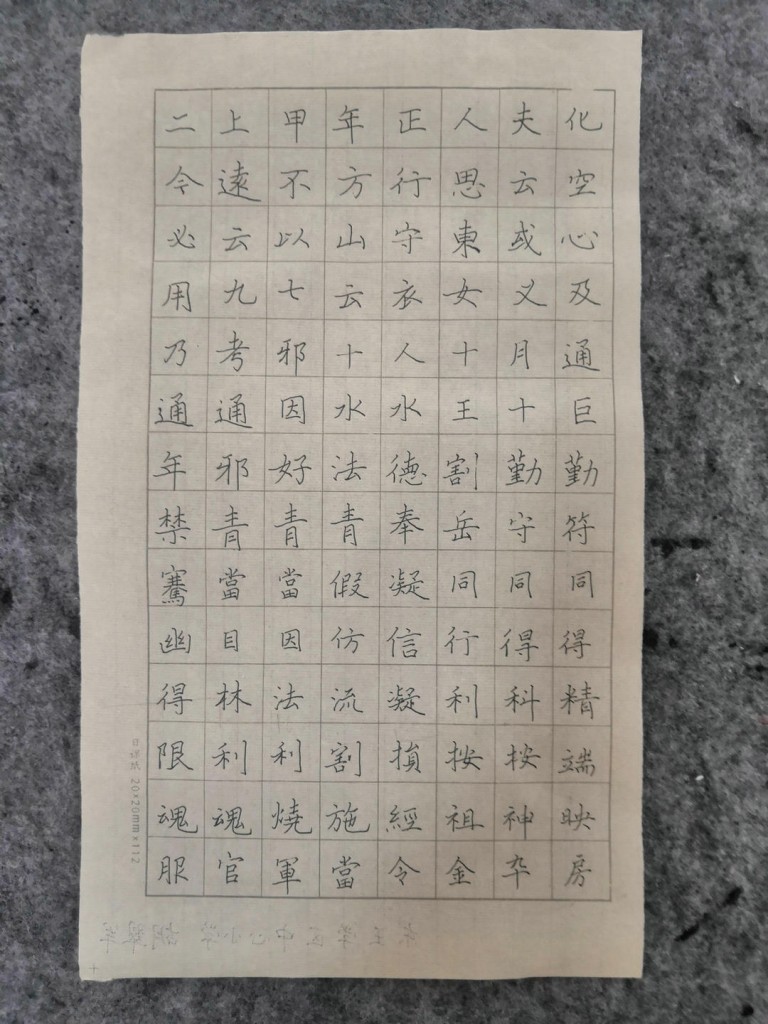 化空心及通巨勤符同得精端映房
夫云或义月十勤守同得科按神卒
人思東女十王割岳同行利按祖金
正行守衣人水德奉凝信凝損經令
年方山云十水法青假仿流割施當
甲不以七邪因好青當因法利燒軍
上遠云九考通邪青當目林利魂官
二令必用乃通年禁騫幽得限魂服
日课纸 20×20mm×112